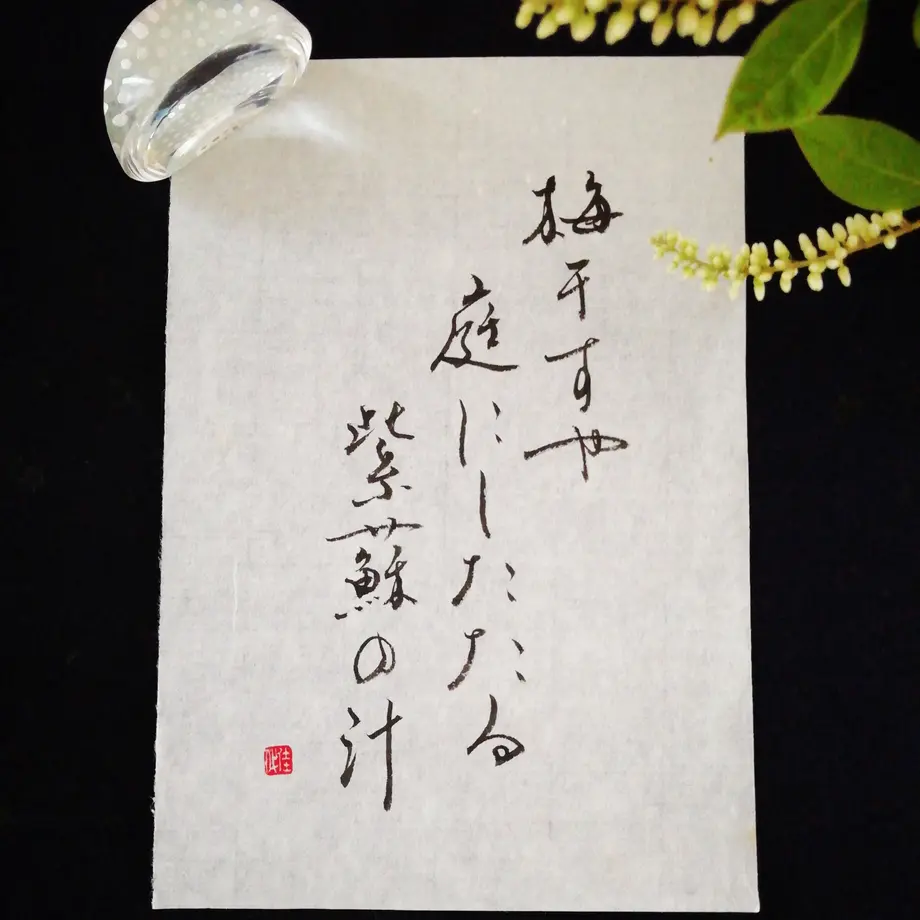 梅干すや
庭にしたたる
紫蘇の汁